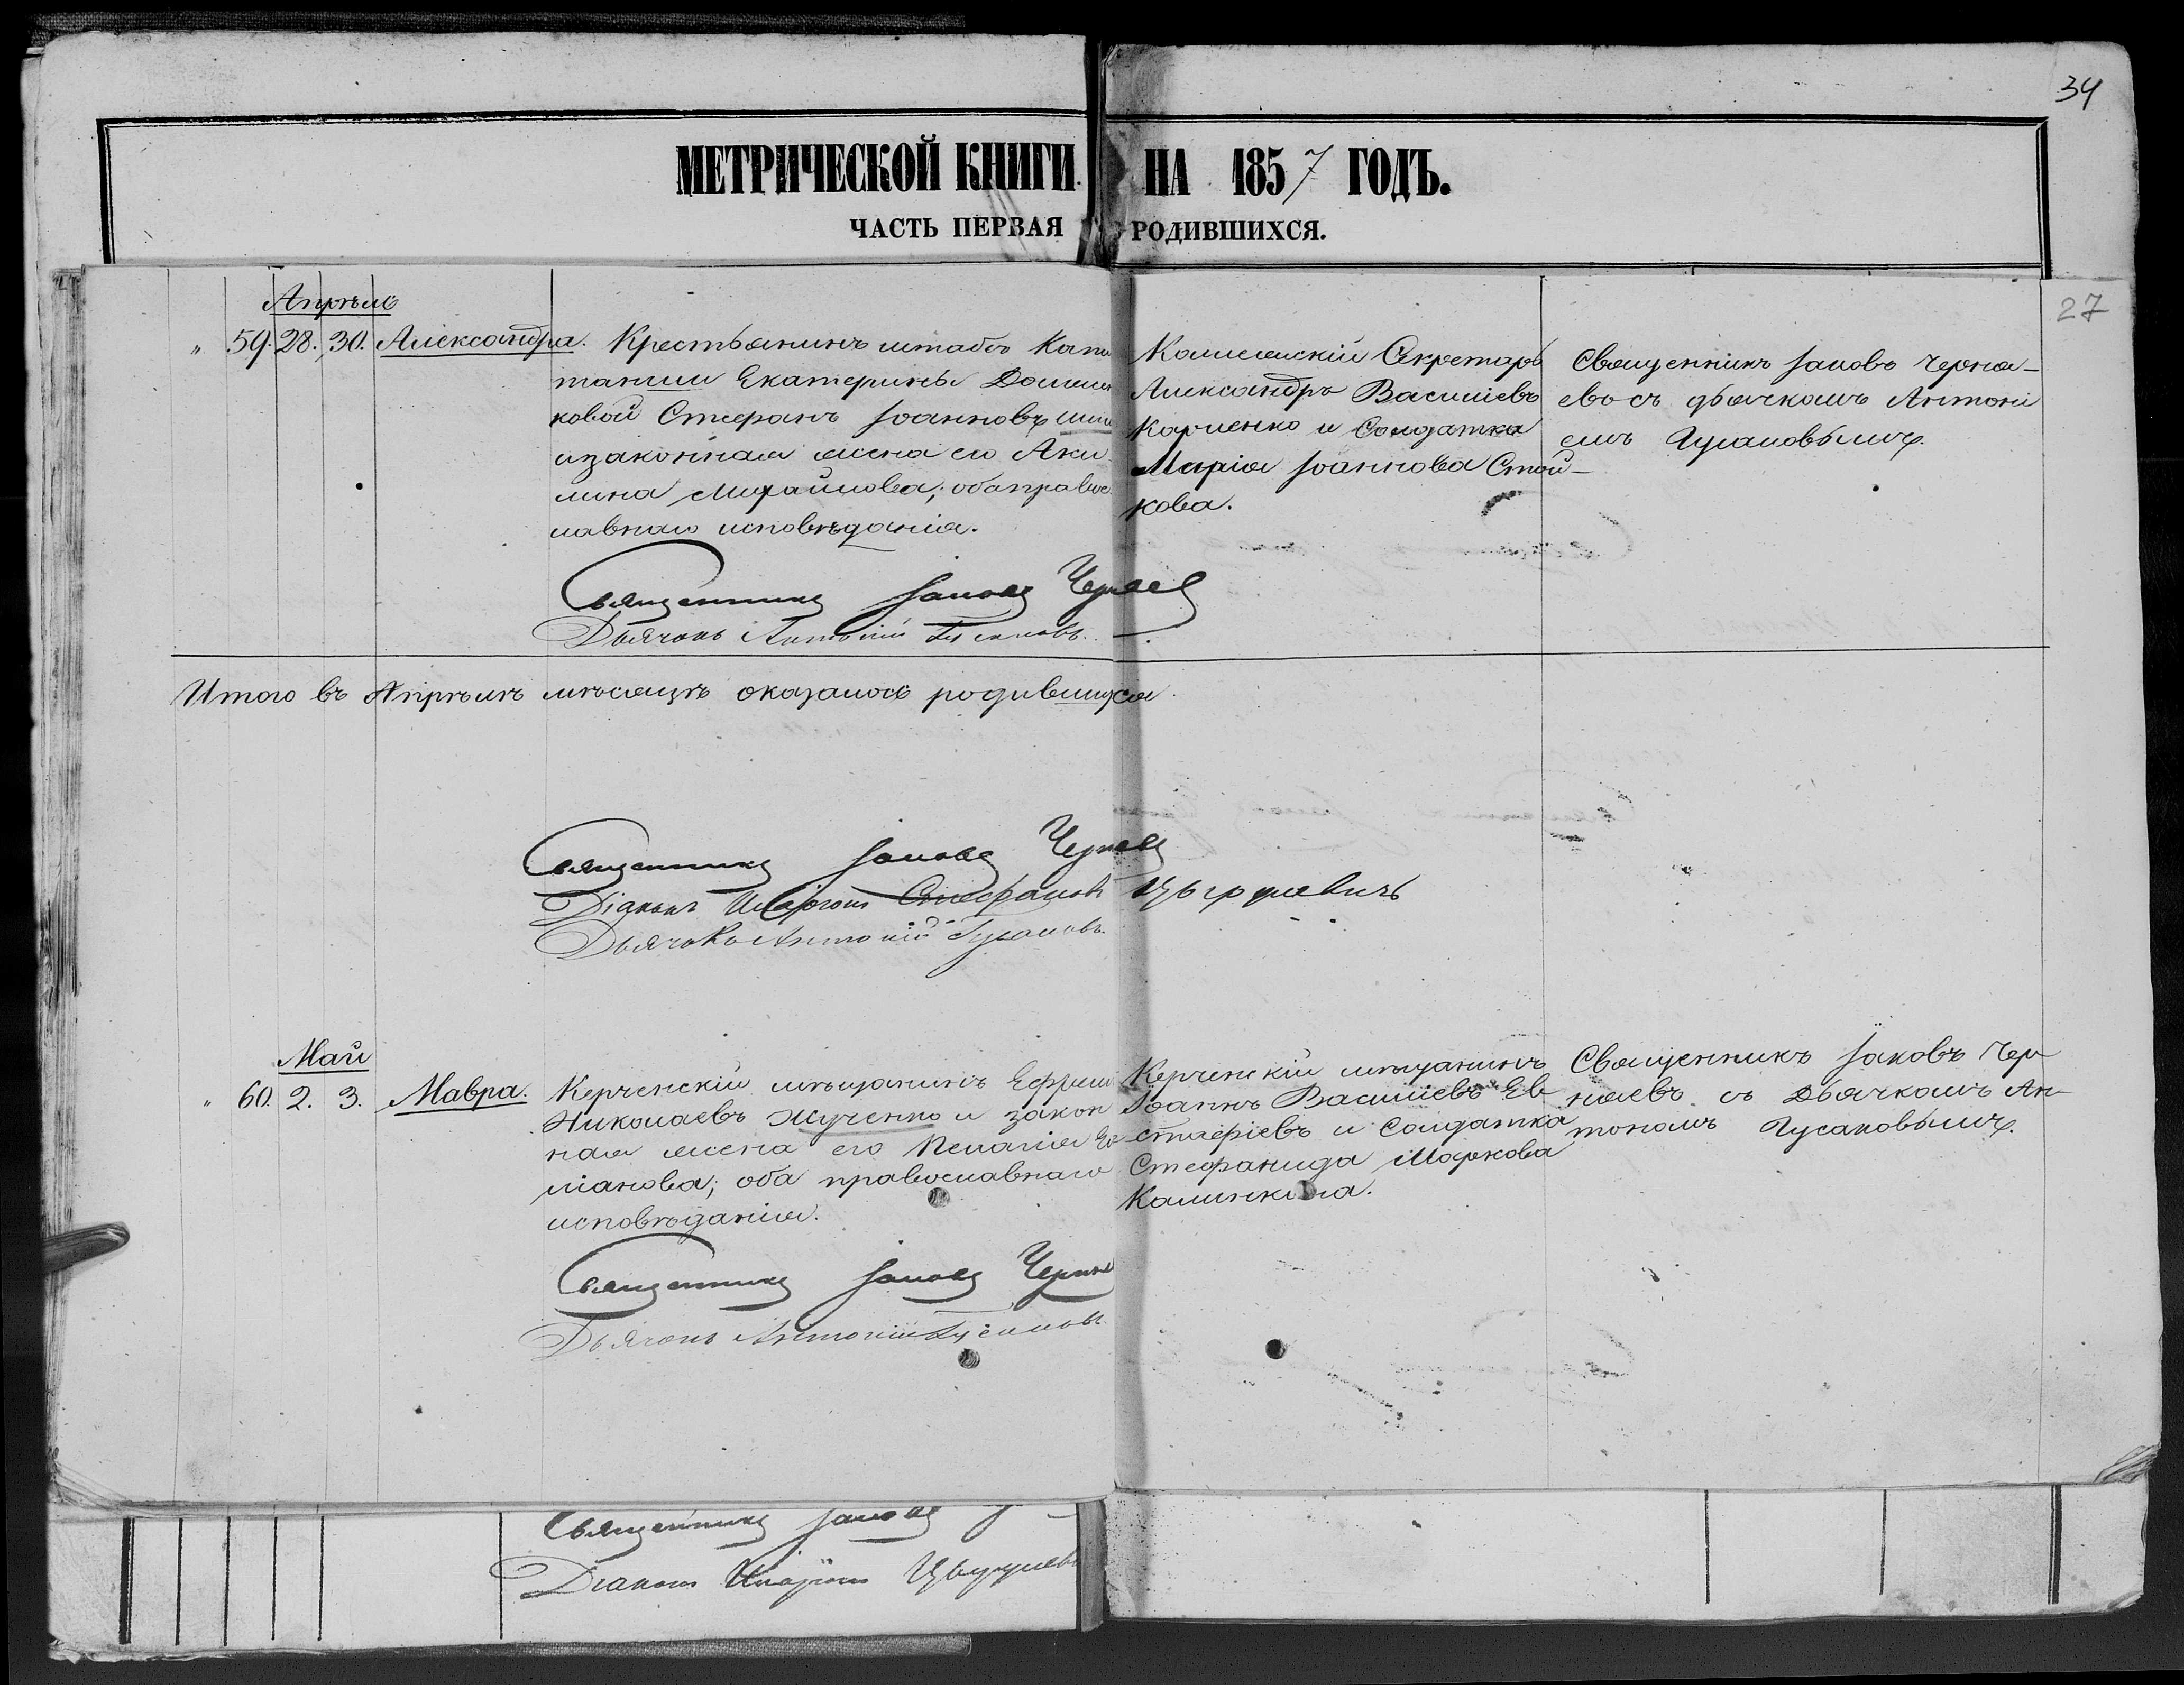 34
МЕТРИЧЕСКОЙ КНИГИ НА 1857 ГОДЪ.
ЧАСТЬ ПЕРВАЯ РОДИВШИХСЯ.
27
Апрѣль
" 59. 28. 30. Александра.
Крестьянинъ штабсъ Капи
танши Екатерины
ковой Стефанъ Іоанновъ
и законная жена его Аки
лина Михайлова; оба правос
лавнаго исповѣданія.
Коллежскій Секретарь
Александръ Васильевъ
Карпенко и Солдатка
Марія Іоаннова Стой-
кова.
Священникъ Іаковъ Черня-
евъ съ дьячкомъ Антоні
емъ Гусаковымъ.
Священникъ Іаковъ Черняев
Дьячокъ Антоній Гусаковъ.
Итого въ Апрѣлѣ мѣсяцѣ оказалось родившихся
Священникъ Іаковъ Черняев
Діаконъ Иларіонъ Стефановъ
Дьячокъ Антоній Гусаковъ.
Май
" 60. 2. 3. Мавра.
Керченскій мѣщанинъ Ефрем
Николаевъ Жученко и закон
ная жена его Пелагія
ліанова; оба православнаго
исповѣданія.
Керченскій мѣщанинъ
Іоаннъ Васильевъ Ев
стафіевъ и Солдатка
Стефанида Маркова
Калинкина.
Священникъ Іаковъ Чер
няевъ съ Дьячкомъ Ан-
тономъ Гусаковымъ.
Священникъ Іаковъ Черняе
Дьячокъ Антоній Гусаковъ
Священникъ Іаковъ
Діаконъ Иларіонъ